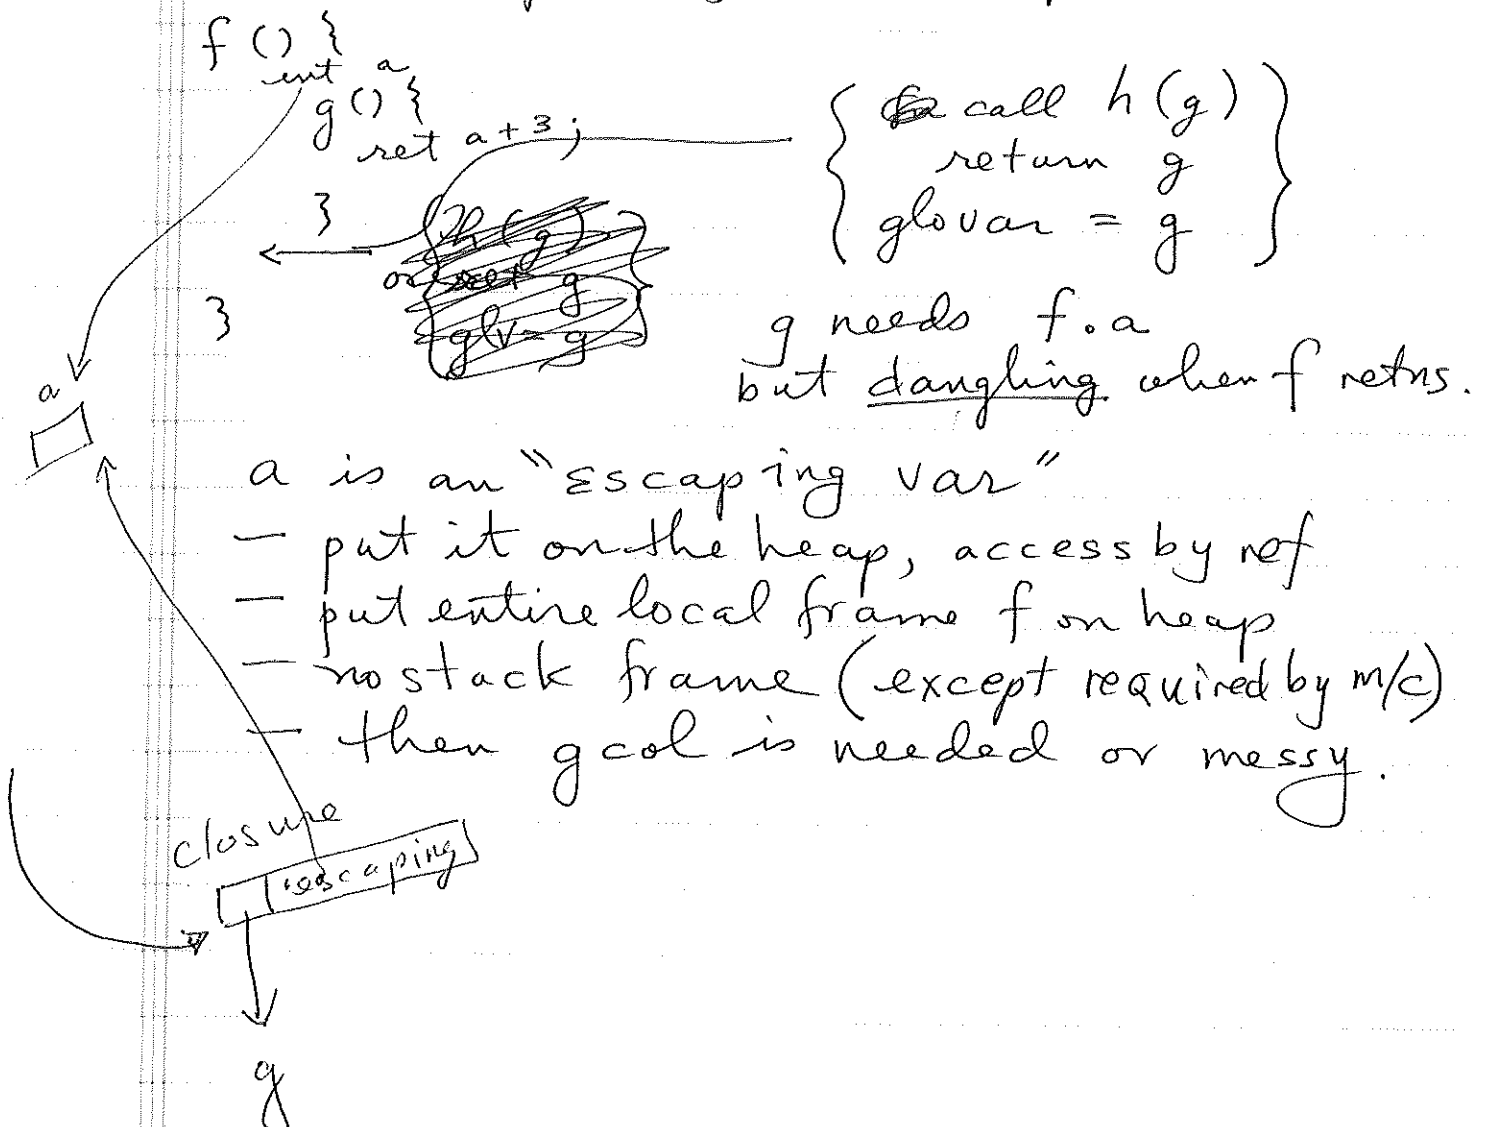 f () {
int a
g () {
ret a + 3;
}
}
call h (g)
return g
glovar = g
h (g)
or ret g
glv = g
g needs f.a
but dangling when f retns.
a
a is an "Escaping var"
— put it on the heap, access by ref
— put entire local frame f on heap
— no stack frame (except required by m/c)
— then gcol is needed or messy.
closure
escaping
g